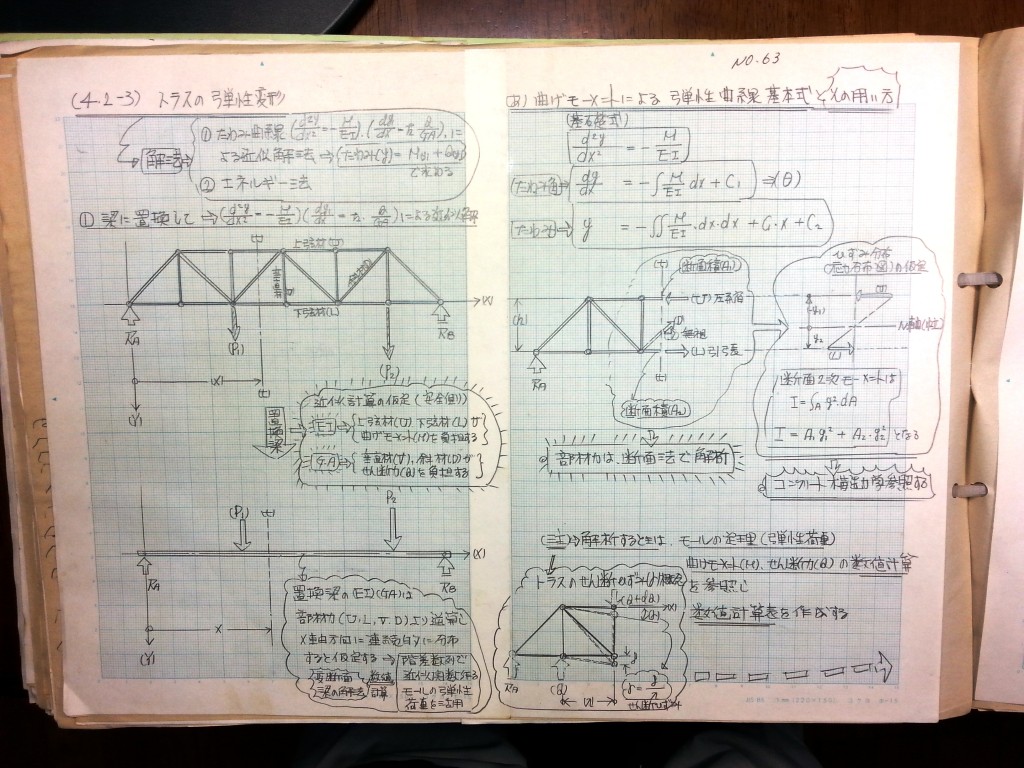 NO.63
(4.2-3) トラスの弾性変形
解法
① たわみ曲線 (d²y/dx² = -M/EI).(dy/dx = Q/GA).に
よる近似解法 → (たわみ(y) = My + Qy)
で求める
② エネルギー法
① 梁に置換して → (d²y/dx² = -M/EI)(dy/dx = Q/GA)による近似解
上弦材(U)
垂直材
斜材(D)
下弦材(L)
(X)
RA
(P1)
(P2)
RB
(X)
(Y)
置換梁
近似計算の仮定(安全側)
(EI) → 上弦材(U) 下弦材(L)が
曲げモーメント(M)を負担する
(GA) → 垂直材(V), 斜材(D)が
せん断力(Q)を負担する
(P1)
P2
(X)
RA
RB
X
(Y)
置換梁の(EI)(GA)は
部材力(U, L, V, D)より逆算し
X軸方向に連続的に分布
すると仮定する →
階差数列で
近似関数を作る
モールの弾性
荷重を活用
変断面
梁の解法
数値
計算
(a) 曲げモーメントによる 弾性曲線 基本式とXの用い方
(基本式)
d²y/dx² = -M/EI
(たわみ角) → dy/dx = -∫M/EI dx + C1 → (θ)
(たわみ) → y = -∬M/EI.dx.dx + C1.X + C2
断面積(A1)
(U) 圧縮
(D)
無視
(L) 引張
(h)
RA
断面積(A2)
ひずみ分布
(応力分布図)の仮定
(U)
y1
y2
(L)
断面2次モーメントは
I = ∫A y².dA
I = A1y1² + A2.y2² となる
部材力は、断面法で解析
コンクリート構造力学参照する
(EI) → 解析するときは、モールの定理(弾性荷重)
曲げモーメント(M)、せん断力(Q)の数値計算
を参照し
数値計算表を作成する
トラスのせん断ひずみ(γ)概念
(Q+dQ)
RA
(Q)
γ = y/λ
せん断ひずみ